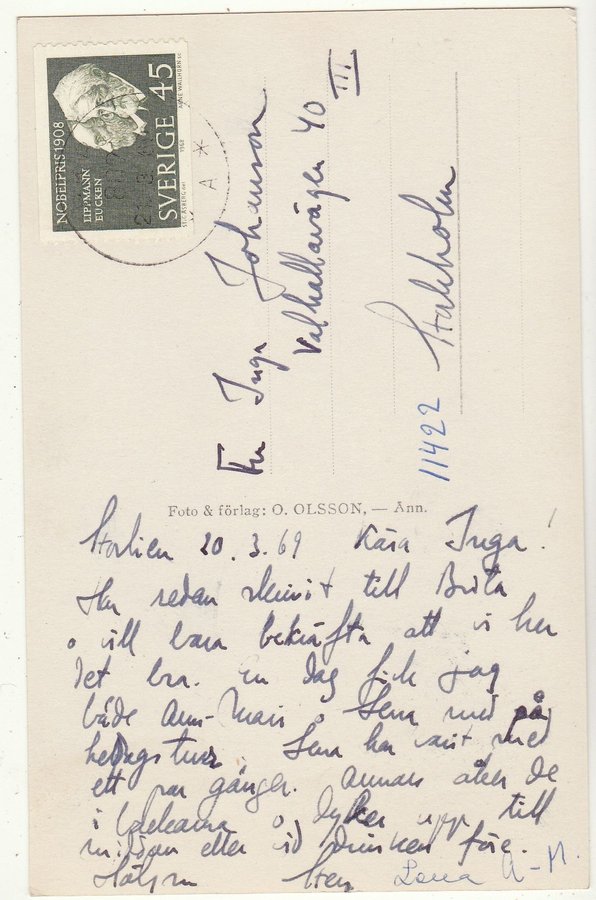 NOBELPRIS 1908
LIPPMANN
EUCKEN
SVERIGE 45
1968
ARNE WALLHORN SC
Fru Inga Johanson
Valhallavägen 40 III
11422 Stockholm
Foto & förlag: O. OLSSON, — Ånn.
Storlien 20.3.69 Kära Inga!
Har redan skrivit till Brita
o vill bara bekräfta att vi har
det bra. En dag fick jag
både Ann-Mari o Lena med på
heldagstur. Lena har varit med
ett par gånger. Annars åker de
i backarna o dyker upp till
middan eller vid drinken före.
Hälsn Sten Lena A-M.